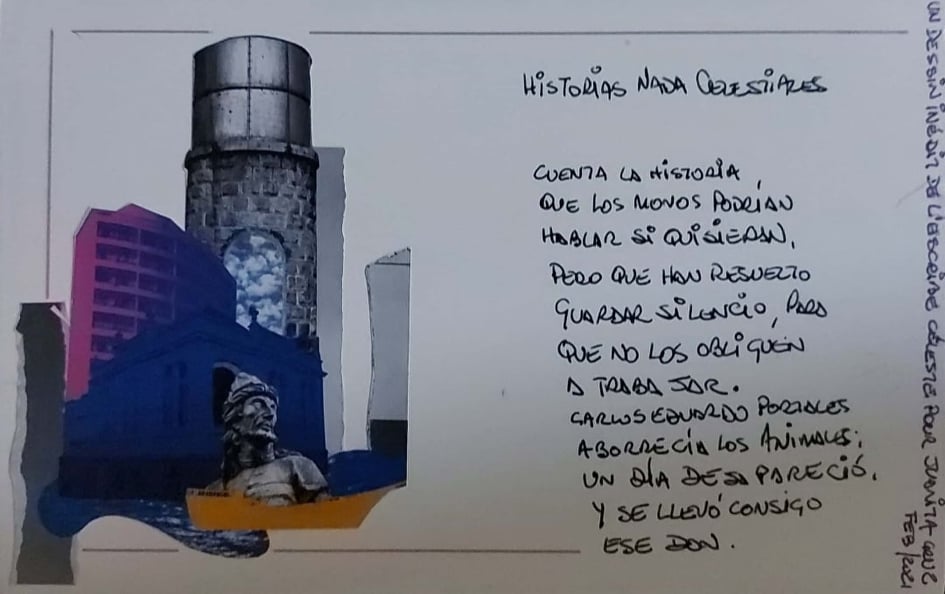 HISTORIAS NADA CELESTIALES
CUENTA LA HISTORIA,
QUE LOS MONOS PODRÍAN
HABLAR SI QUISIERAN,
PERO QUE HAN RESUELTO
GUARDAR SILENCIO, PARA
QUE NO LOS OBLIGUEN
A TRABAJAR.
CARLOS EDUARDO PORTALES
ABORRECÍA LOS ANIMALES;
UN DÍA DESAPARECIÓ,
Y SE LLEVÓ CONSIGO
ESE DON.
UN DESSIN INÉDIT DE L'ESCRIBE CÉLESTE POUR JUANITA CRUZ
FEB/2021